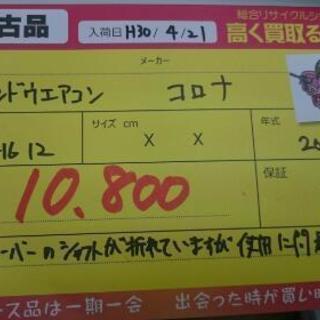 古品 入荷日 H30/4/21
総合リサイクルシ
高く買取る
メーカー
ンドウエアコン コロナ
サイズ cm 年式
1612 X X 20
保証
10.800
ーバーのシャフトが折れていますが使用に
ース品は一期一会 出会った時が買い時